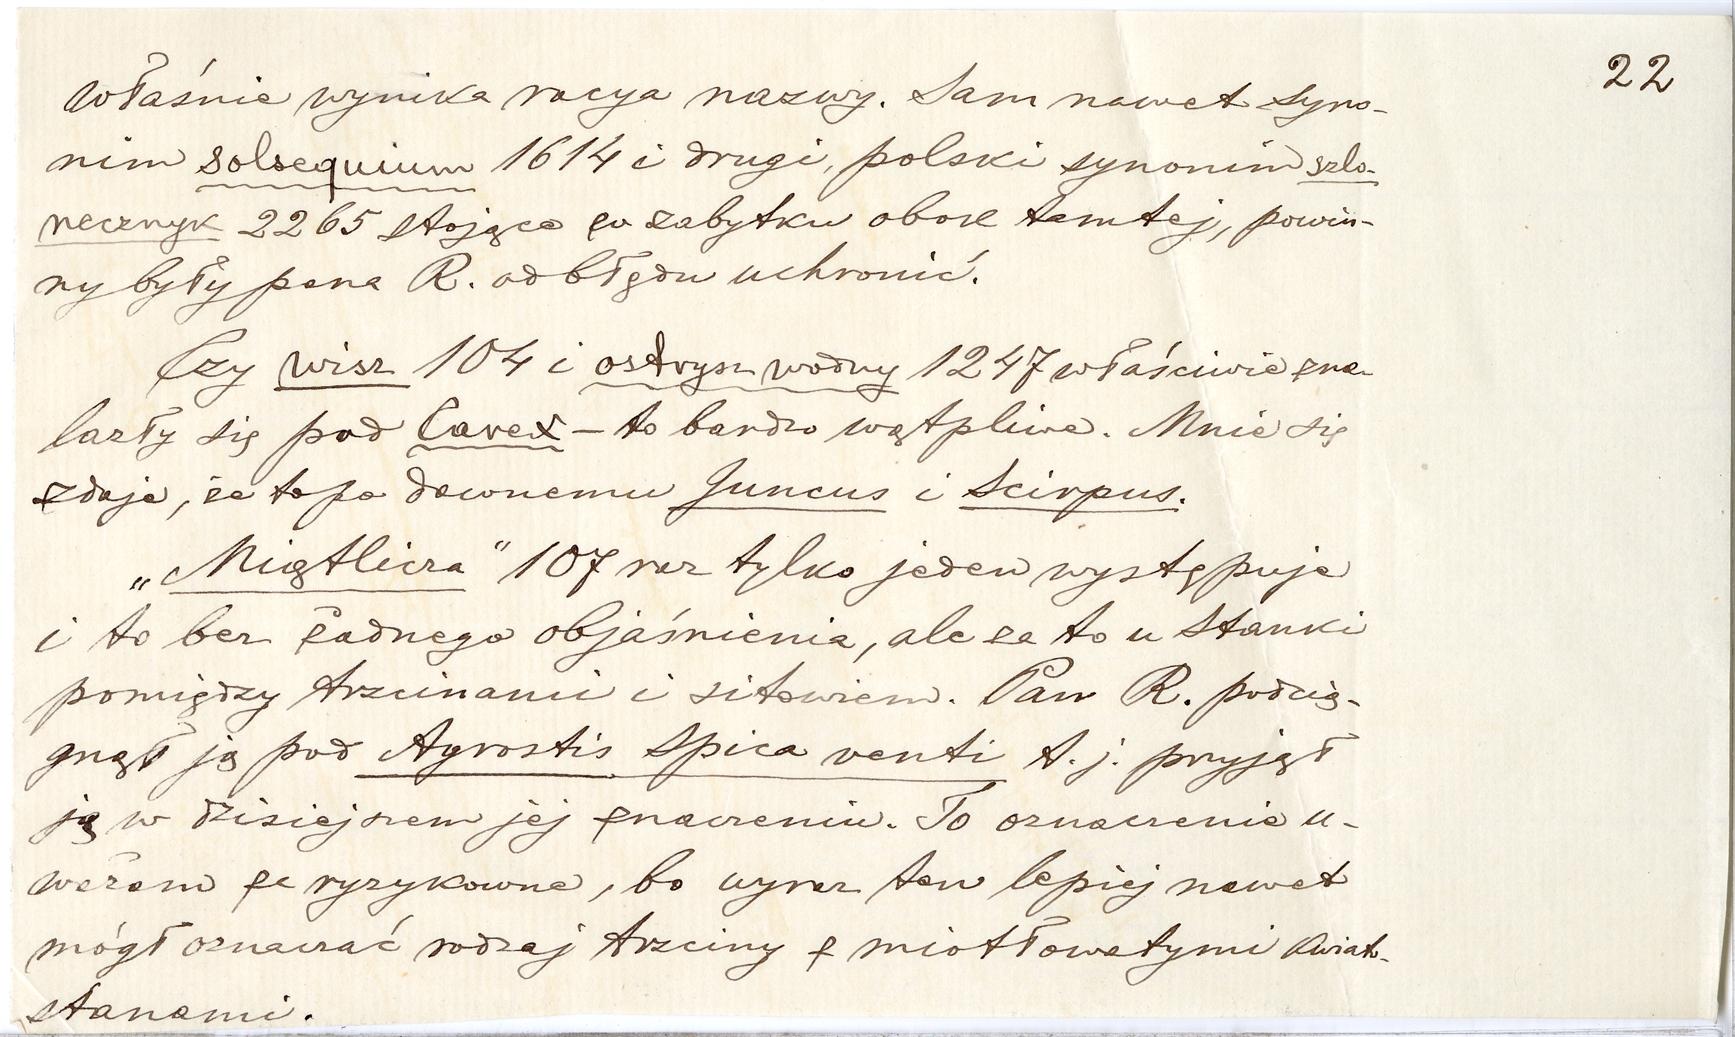 22
właśnie wynika racya nazwy. Sam nawet syno-
nim solsequium 1614 i drugi, polski synonim szlo-
necznyk 2265 stojące w zabytku obok tamtej, powin-
ny były pana R. od błędu uchronić.
Czy wisz 104 i ostrysz wodny 1247 właściwie zna-
lazły się pod Carex – to bardzo wątpliwe. Mnie się
zdaje, że to po dawnemu Juncus i Scirpus.
„Miątlicza" 107 raz tylko jeden występuje
i to bez żadnego objaśnienia, ale za to u Stanki
pomiędzy trzcinami i sitowiem. Pan R. podcią-
gnął ją pod Agrostis Spica venti t.j. przyjął
ją w dzisiejszem jej znaczeniu. To oznaczenie u-
ważam za ryzykowne, bo wyraz ten lepiej nawet
mógł oznaczać rodzaj trzciny z miotłowatymi kwiato-
stanami.